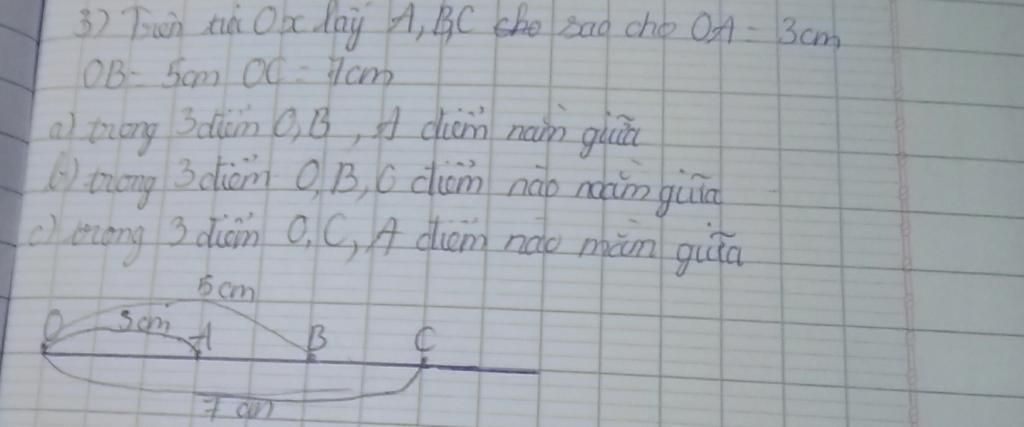 3) Trên tia Ox lấy A, B, C cho sao cho OA = 3cm
OB = 5cm OC = 7cm
a) trong 3 điểm O, B, A điểm nằm giữa
b) trong 3 điểm O, B, C điểm nào nằm giữa
c) trong 3 điểm O, C, A điểm nào nằm giữa
5cm
O 3cm A B C
7cm